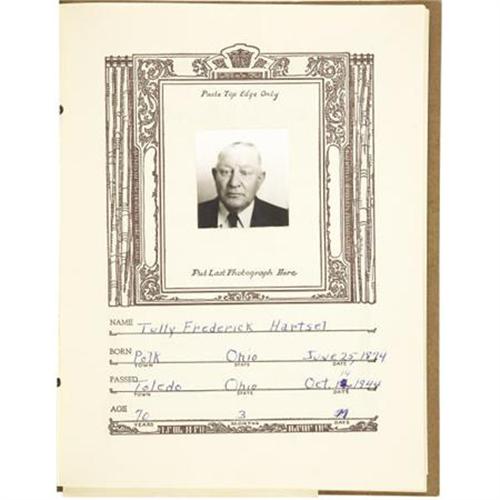 Paste Top Edge Only
Put Last Photograph Here
NAME Tully Frederick Hartsel
BORN Polk Ohio June 25, 1874
TOWN STATE DATE
14
PASSED Toledo Ohio Oct. 1944
TOWN STATE DATE
AGE 70 3
YEARS MONTHS DAYS